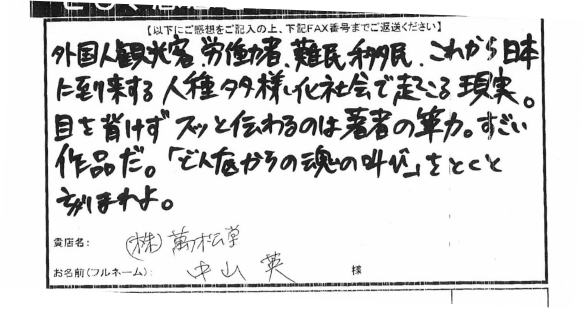 【以下にご感想をご記入の上、下記FAX番号までご返送ください】
外国人観光客、労働者、難民移民、これから日本
に到来する人種多様化社会で起こる現実。
目を背けずスッと伝わるのは著者の筆力。すごい
作品だ。「どん底からの魂の叫び」をとくと
貴店名：(株)萬松堂
お名前(フルネーム)：中山英 様